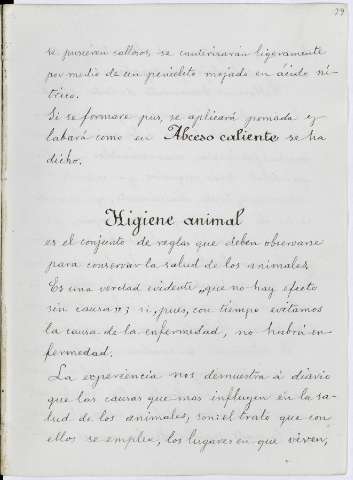 29
se pusieren callosos, se cauterizarán ligeramente
por medio de un pincelito mojado en ácido ní-
trico.
Si se formare pus, se aplicará pomada y
labará como en Abceso caliente se ha
dicho.
Higiene animal
es el conjunto de reglas que deben observarse
para conservar la salud de los animales.
Es una verdad evidente "que no hay efecto
sin causa"; si, pues, con tiempo evitamos
la causa de la enfermedad, no habrá en-
fermedad.
La experiencia nos demuestra á diario
que las causas que mas influyen en la sa-
lud de los animales, son: el trato que con
ellos se emplea, los lugares en que viven,